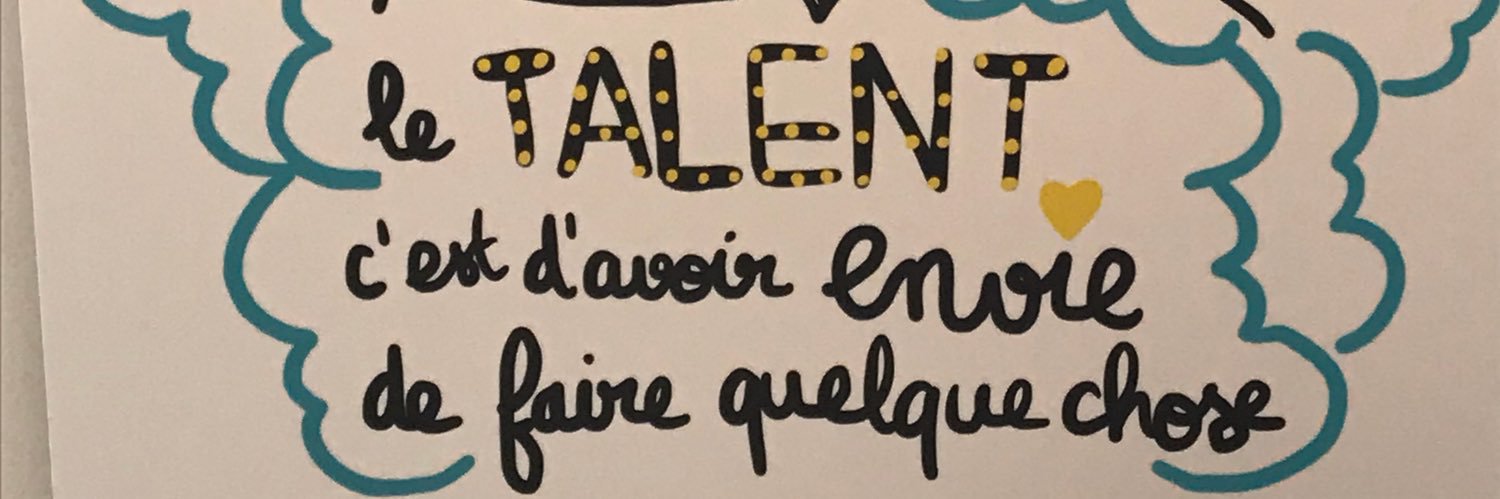 le TALENT
c'est d'avoir envie
de faire quelque chose